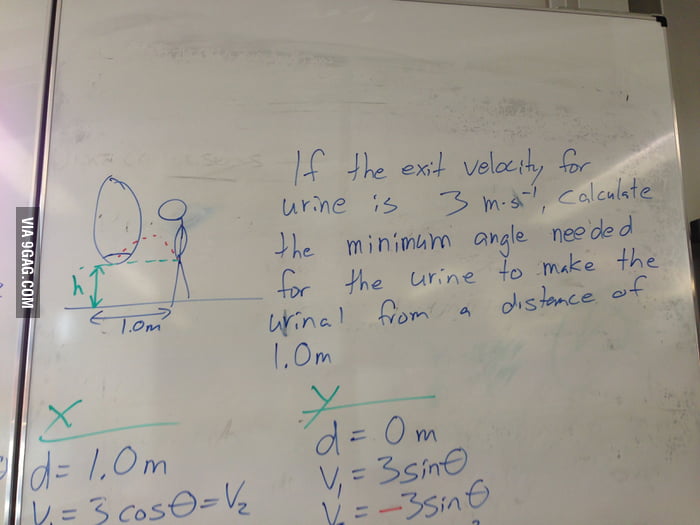 If the exit velocity for
urine is 3 m·s⁻¹, calculate
the minimum angle needed
for the urine to make the
urinal from a distance of
1.0m
h
1.0m
VIA 9GAG.COM
x
d = 1.0m
V₁ = 3 cosθ = V₂
y
d = 0 m
V₁ = 3sinθ
V₂ = -3sinθ